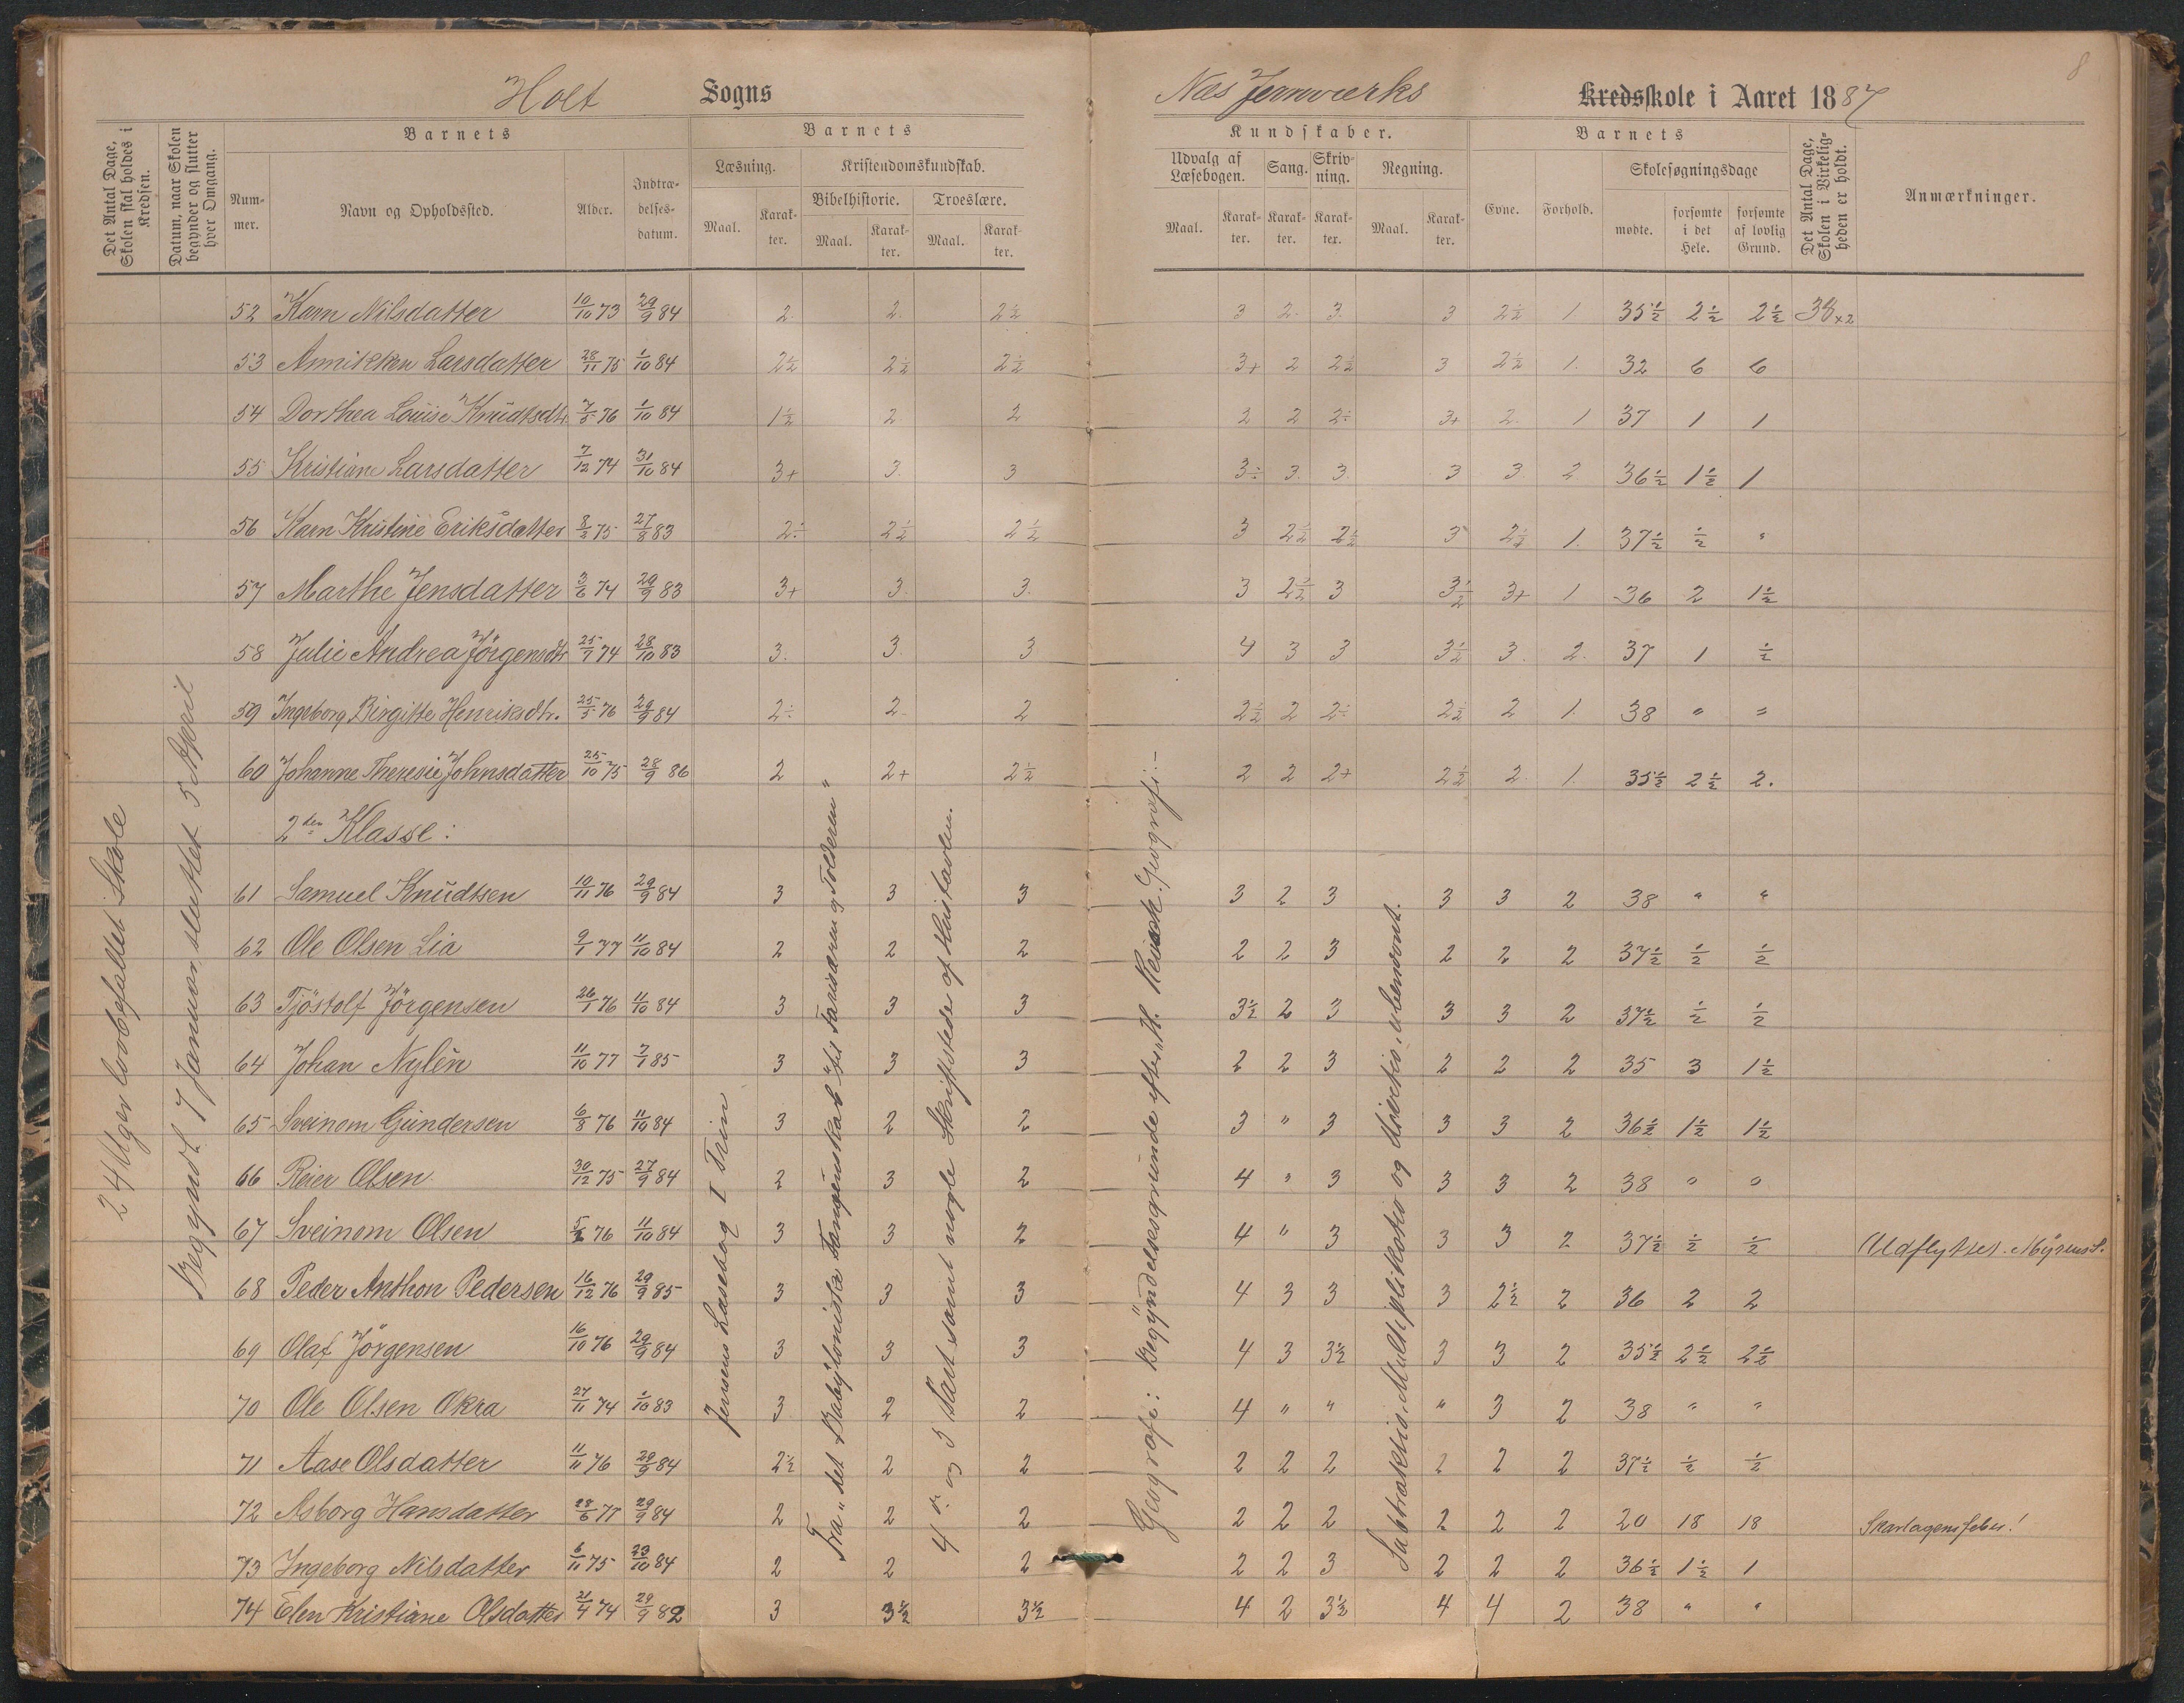 8
Holt Sogns Næs Jernværks Kredsskole i Aaret 1887
Det Antal Dage, Skolen skal holdes i Kredsen.
Datum, naar Skolen begynder og slutter hver Omgang.
Barnets
Nummer.
Navn og Opholdssted.
Alder.
Indtrædelsesdatum.
Barnets
Læsning.
Maal.
Karakter.
Kristendomskundskab.
Bibelhistorie.
Maal.
Karakter.
Troeslære.
Maal.
Karakter.
Kundskaber.
Udvalg af Læsebogen.
Maal.
Karakter.
Sang.
Karakter.
Skrivning.
Karakter.
Regning.
Maal.
Karakter.
Barnets
Evne.
Forhold.
Skolesøgningsdage
mødte.
forsømte i det Hele.
forsømte af lovlig Grund.
Det Antal Dage, Skolen i Virkeligheden er holdt.
Anmærkninger.
24 Uger lovbefallet Skole
Begyndt 7 Januar, sluttet 5 April
52 Karn Nilsdatter 10/10 73 29/9 84 2. 2. 2½ 3 2. 3. 3 2½ 1. 35½ 2½ 2½ 38×2
53 Annikken Larsdatter 28/11 75 1/10 84 2½ 2½ 2½ 3+ 2 2½ 3 2½ 1. 32 6 6
54 Dorthea Louise Knudtsdtr. 7/5 76 1/10 84 1½ 2 2 2 2 2÷ 3+ 2. 1 37 1 1
55 Kristiane Larsdatter 7/12 74 31/10 84 3+ 3. 3 3÷ 3. 3. 3 3 2 36½ 1½ 1
56 Karn Kristine Eriksdatter 8/2 75 27/8 83 2÷ 2½ 2½ 3 2½ 2½ 3 2½ 1. 37½ ½ "
57 Marthe Jensdatter 3/6 74 29/9 83 3+ 3. 3. 3 2½ 3 3½ 3+ 1 36 2 1½
58 Julie Andrea Jörgensdtr 25/7 74 28/10 83 3. 3. 3 4 3 3 3½ 3. 2. 37 1 ½
59 Ingeborg Birgitte Henriksdtr. 25/5 76 29/9 84 2÷ 2. 2 2½ 2 2÷ 2½ 2 1. 38 " "
60 Johanne Theresie Johnsdatter 25/10 75 28/9 86 2 2+ 2½ 2 2 2+ 2½ 2. 1. 35½ 2½ 2.
2den Klasse:
61 Samuel Knudtsen 10/11 76 29/9 84 3 3 3 3 2 3 3 3 2 38 " "
62 Ole Olsen Lia 9/1 77 11/10 84 2 2 2 2 2 3 2 2 2 37½ ½ ½
63 Tjöstolf Jörgensen 26/1 76 11/10 84 3 3 3 3½ 2 3 3 3 2 37½ ½ ½
64 Johan Nylén 11/10 77 7/1 85 3 3 3 2 2 3 2 2 2 35 3 1½
65 Sveinom Gundersen 6/8 76 11/10 84 3 2 2 3 " 3 3 3 2 36½ 1½ 1½
66 Reier Olsen 30/12 75 27/9 84 2 3 2 4 " 3 3 3 2 38 " "
67 Sveinom Olsen 5/2 76 11/10 84 3 3 2 4 " 3 3 3 2 37½ ½ ½ Udflyttet. Myrens S.
68 Peder Anthon Pedersen 16/12 76 29/9 85 3 3 3 4 3 3 3 2½ 2 36 2 2
69 Olaf Jörgensen 16/10 76 29/9 84 3 3 3 4 3 3½ 3 3 2 35½ 2½ 2½
70 Ole Olsen Okra 27/11 74 1/10 83 3 2 2 4 " " " 3 2 38 " "
71 Aase Olsdatter 11/11 76 29/9 84 2½ 2 2 2 2 2 2 2 2 37½ ½ ½
72 Asborg Hansdatter 28/6 77 29/9 84 2 2 2 2 2 2 2 2 2 20 18 18 Skarlagensfeber!
73 Ingeborg Nilsdatter 6/11 75 23/10 84 2 2 2 2 2 3 2 2 2 36½ 1½ 1
74 Elen Kristiane Olsdatter 21/4 74 29/9 82 3 3½ 3½ 4 2 3½ 4 4 2 38 " "
Jensens Læsebog I Trin
Fra "det Babyloniske Fangenskab" til "Farisæeren og Tolderen"
4de og 5 Part samt nogle Skriftsteder af Hustavlen.
Geografi: Begyndelsesgrunde efter H. Geografi.
Subtraktion, Multiplikation og Division, ubenævnt.